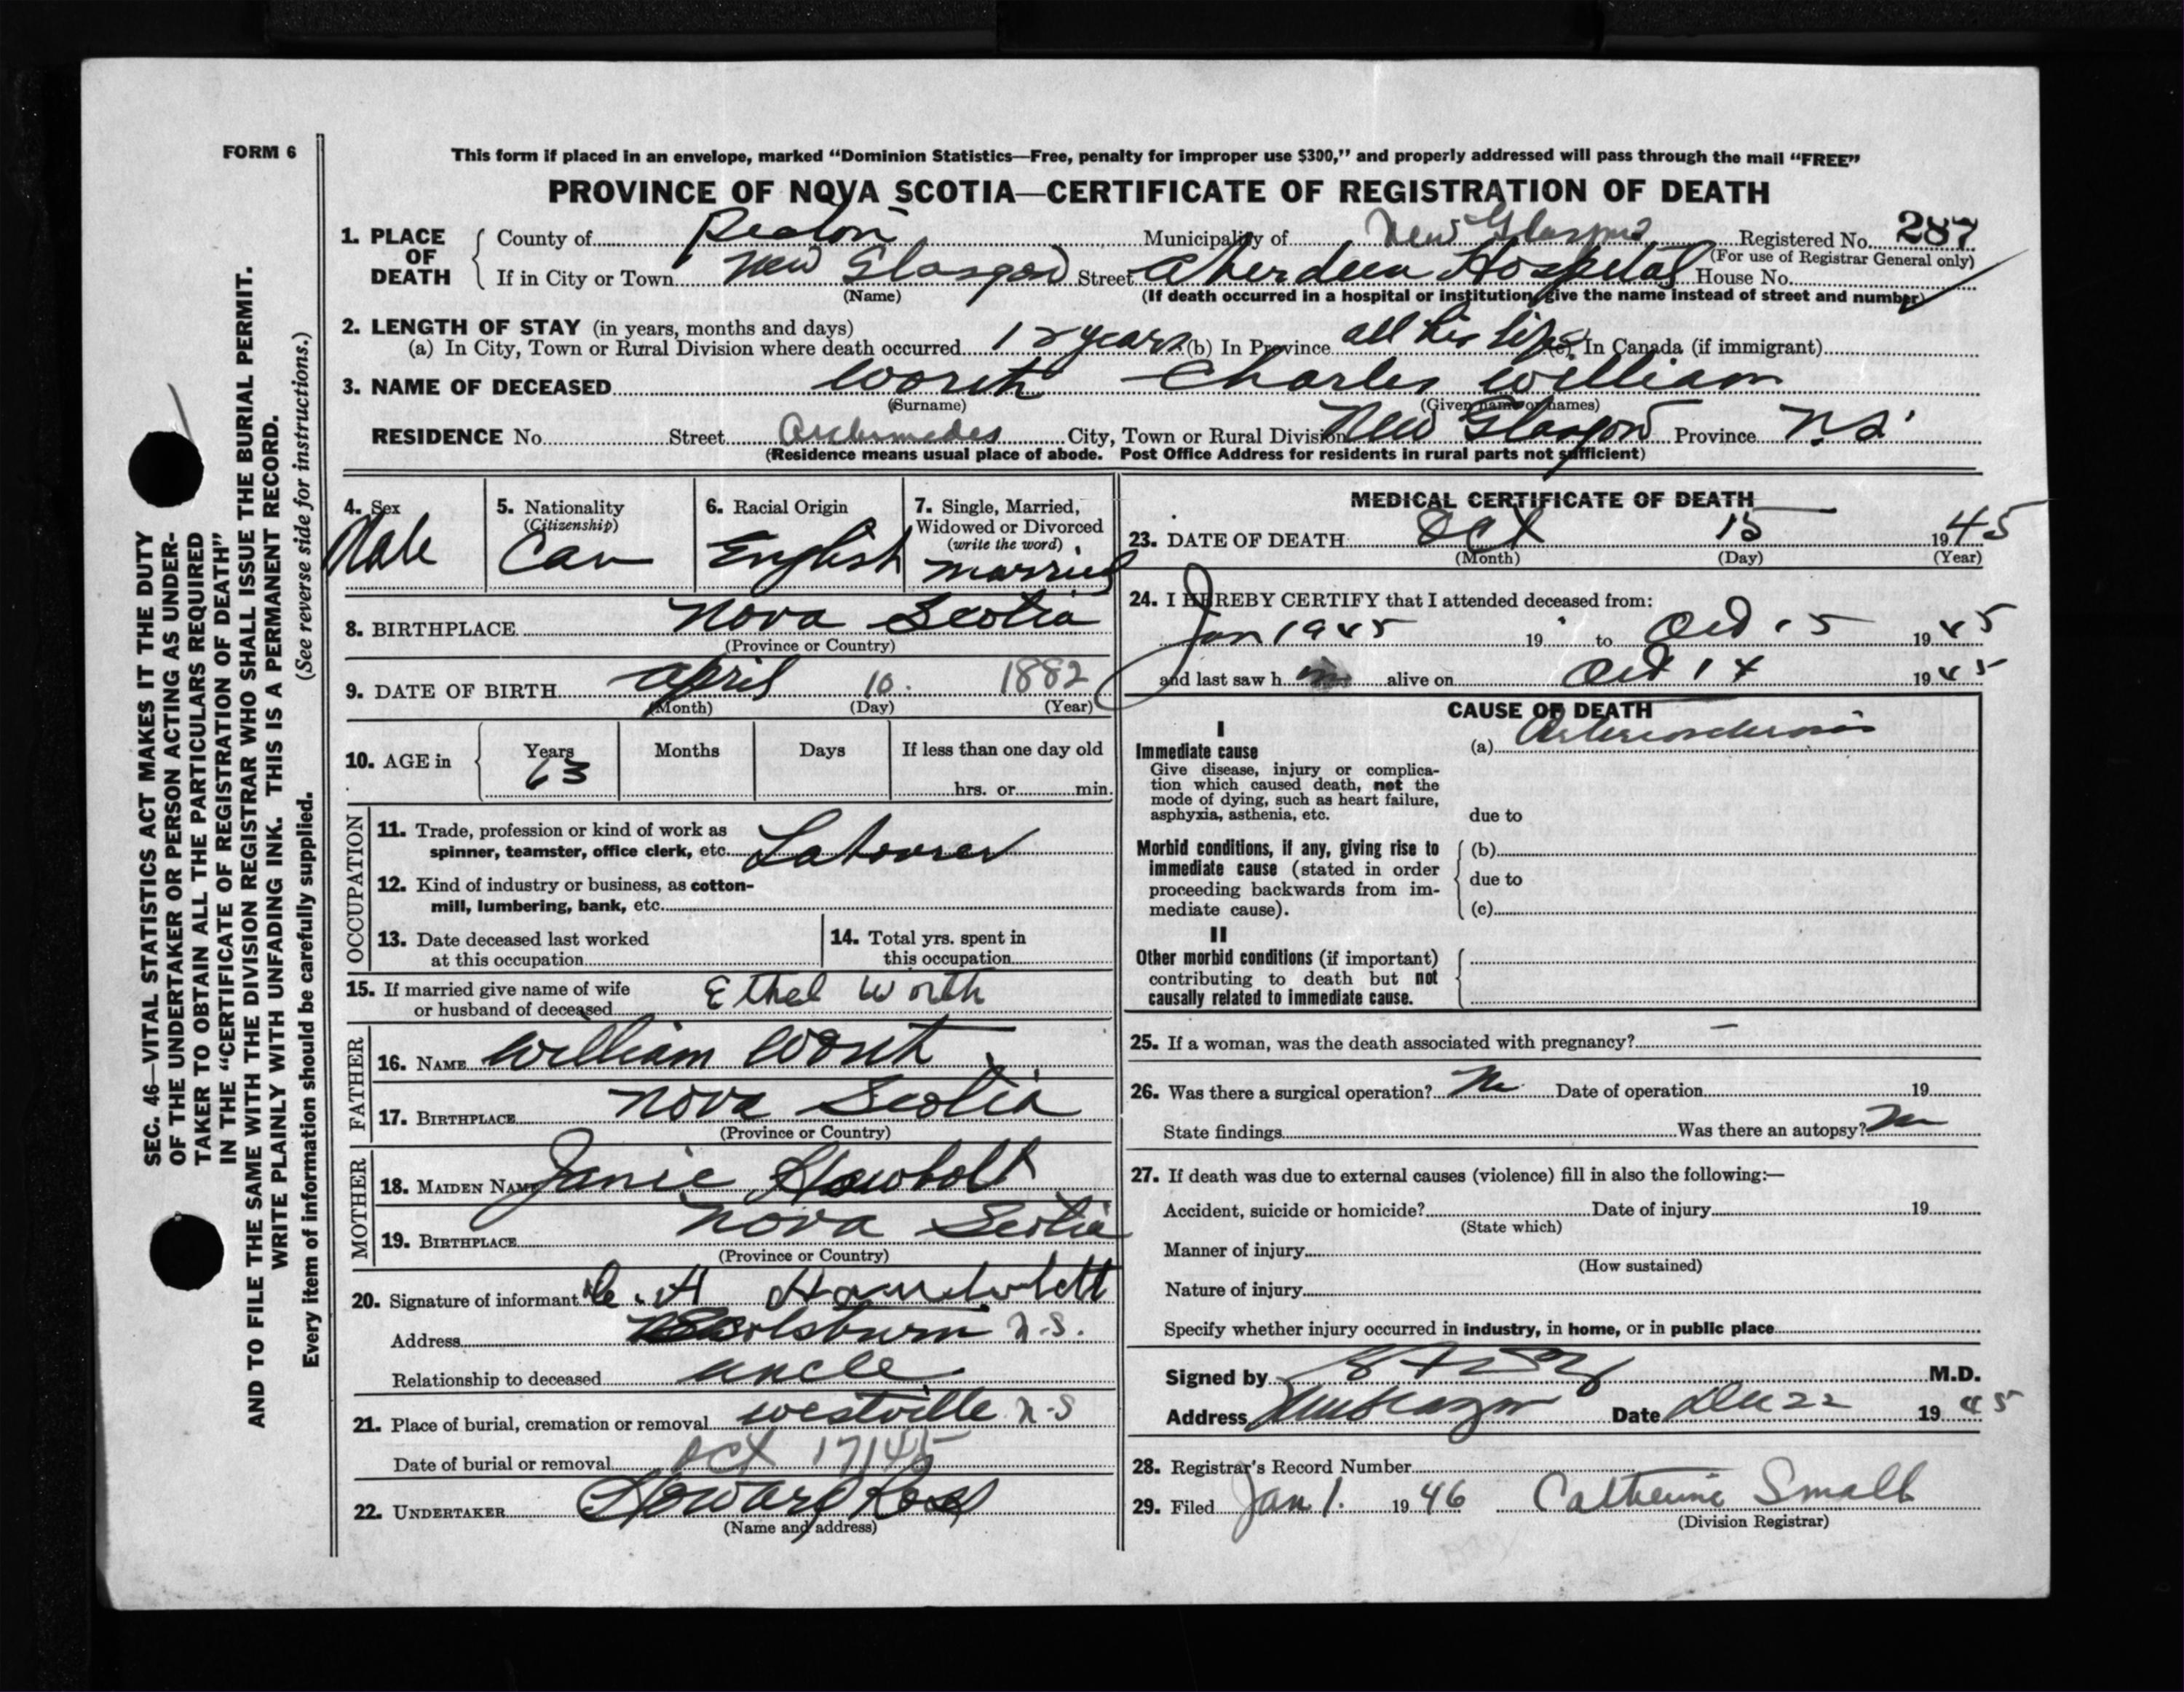 FORM 6
This form if placed in an envelope, marked “Dominion Statistics—Free, penalty for improper use $300,” and properly addressed will pass through the mail “FREE”
PROVINCE OF NOVA SCOTIA—CERTIFICATE OF REGISTRATION OF DEATH
1. PLACE OF DEATH
County of Pictou Municipality of New Glasgow Registered No. 287
(For use of Registrar General only)
If in City or Town New Glasgow Street Aberdeen Hospital House No.
(Name) (If death occurred in a hospital or institution, give the name instead of street and number)
2. LENGTH OF STAY (in years, months and days)
(a) In City, Town or Rural Division where death occurred 12 years (b) In Province all his life (c) In Canada (if immigrant)
3. NAME OF DECEASED Worth Charles William
(Surname) (Given name or names)
RESIDENCE No. Street Archimedes City, Town or Rural Division New Glasgow Province N.S.
(Residence means usual place of abode. Post Office Address for residents in rural parts not sufficient)
4. Sex
Male
5. Nationality
(Citizenship)
Can
6. Racial Origin
English
7. Single, Married,
Widowed or Divorced
(write the word)
married
8. BIRTHPLACE Nova Scotia
(Province or Country)
9. DATE OF BIRTH April 10. 1882
(Month) (Day) (Year)
10. AGE in Years Months Days If less than one day old
63
hrs. or min.
OCCUPATION
11. Trade, profession or kind of work as
spinner, teamster, office clerk, etc. Labourer
12. Kind of industry or business, as cotton-
mill, lumbering, bank, etc.
13. Date deceased last worked
at this occupation
14. Total yrs. spent in
this occupation
15. If married give name of wife
or husband of deceased Ethel Worth
FATHER
16. NAME William Worth
17. BIRTHPLACE Nova Scotia
(Province or Country)
MOTHER
18. MAIDEN NAME Janie
19. BIRTHPLACE Nova Scotia
(Province or Country)
20. Signature of informant
Address N.S.
Relationship to deceased uncle
21. Place of burial, cremation or removal Westville N-S
Date of burial or removal Oct 17/45
22. UNDERTAKER Howard Ross
(Name and address)
MEDICAL CERTIFICATE OF DEATH
23. DATE OF DEATH Oct 15 1945
(Month) (Day) (Year)
24. I HEREBY CERTIFY that I attended deceased from:
Jan 1945 19 to Oct 15 1945
and last saw h im alive on Oct 14 1945
CAUSE OF DEATH
I
Immediate cause
Give disease, injury or complica-
tion which caused death, not the
mode of dying, such as heart failure,
asphyxia, asthenia, etc.
(a) Arteriosclerosis
due to
Morbid conditions, if any, giving rise to
immediate cause (stated in order
proceeding backwards from im-
mediate cause).
(b)
due to
(c)
II
Other morbid conditions (if important)
contributing to death but not
causally related to immediate cause.
25. If a woman, was the death associated with pregnancy? —
26. Was there a surgical operation? No Date of operation 19
State findings Was there an autopsy? No
27. If death was due to external causes (violence) fill in also the following:—
Accident, suicide or homicide? Date of injury 19
(State which)
Manner of injury
(How sustained)
Nature of injury
Specify whether injury occurred in industry, in home, or in public place
Signed by M.D.
Address New Glasgow Date Dec 22 1945
28. Registrar's Record Number
29. Filed Jan 1. 1946 Catherine Small
(Division Registrar)
SEC. 46—VITAL STATISTICS ACT MAKES IT THE DUTY
OF THE UNDERTAKER OR PERSON ACTING AS UNDER-
TAKER TO OBTAIN ALL THE PARTICULARS REQUIRED
IN THE “CERTIFICATE OF REGISTRATION OF DEATH”
AND TO FILE THE SAME WITH THE DIVISION REGISTRAR WHO SHALL ISSUE THE BURIAL PERMIT.
WRITE PLAINLY WITH UNFADING INK. THIS IS A PERMANENT RECORD.
Every item of information should be carefully supplied. (See reverse side for instructions.)